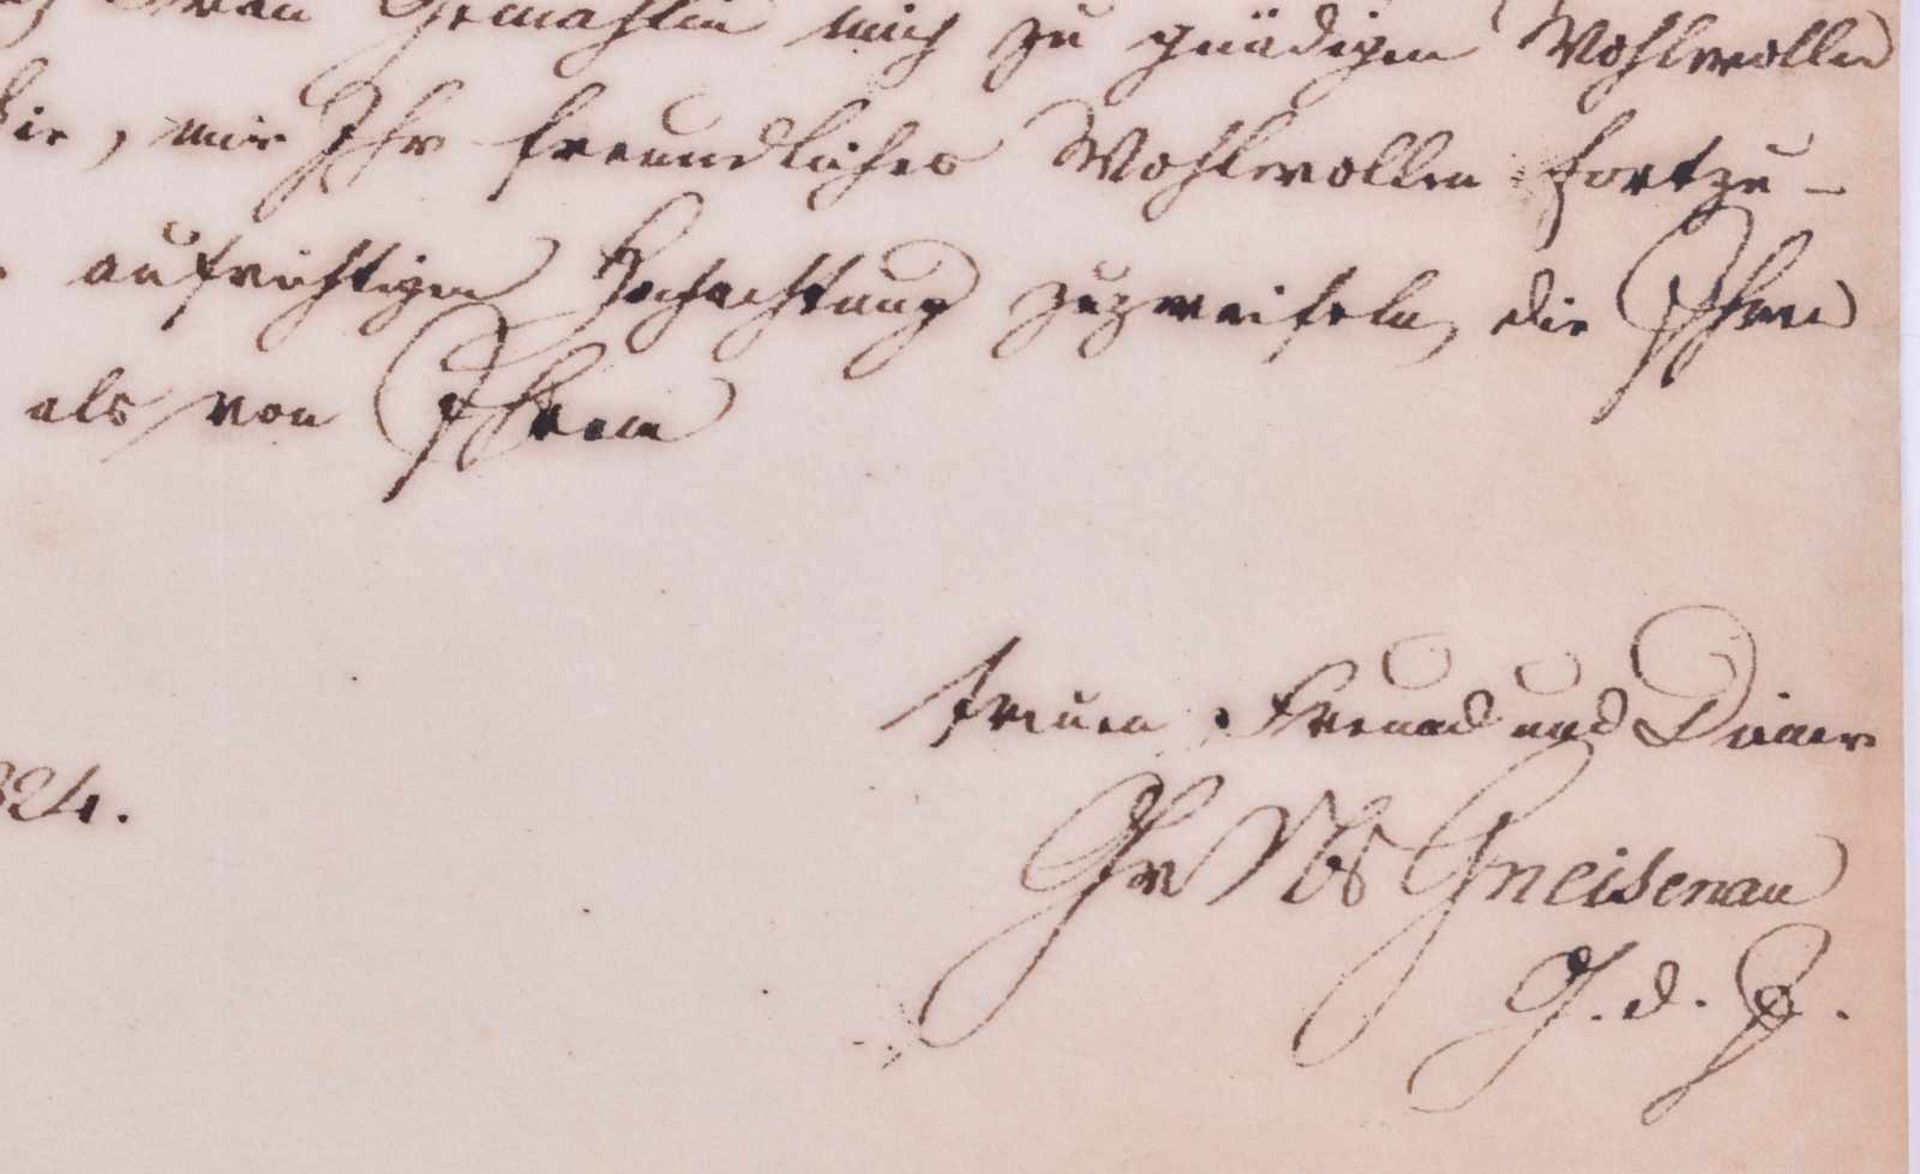 Frau Gemahlin mich zu gnädigem Wohlwollen
Sie, mir Ihr freundliches Wohlwollen fortzu-
aufrichtigen Hochachtung zuzweifeln, die Ihnen
als von Ihrem
treuen Freund und Diener
824.
Gr N v Gneisenau
G. d. I.